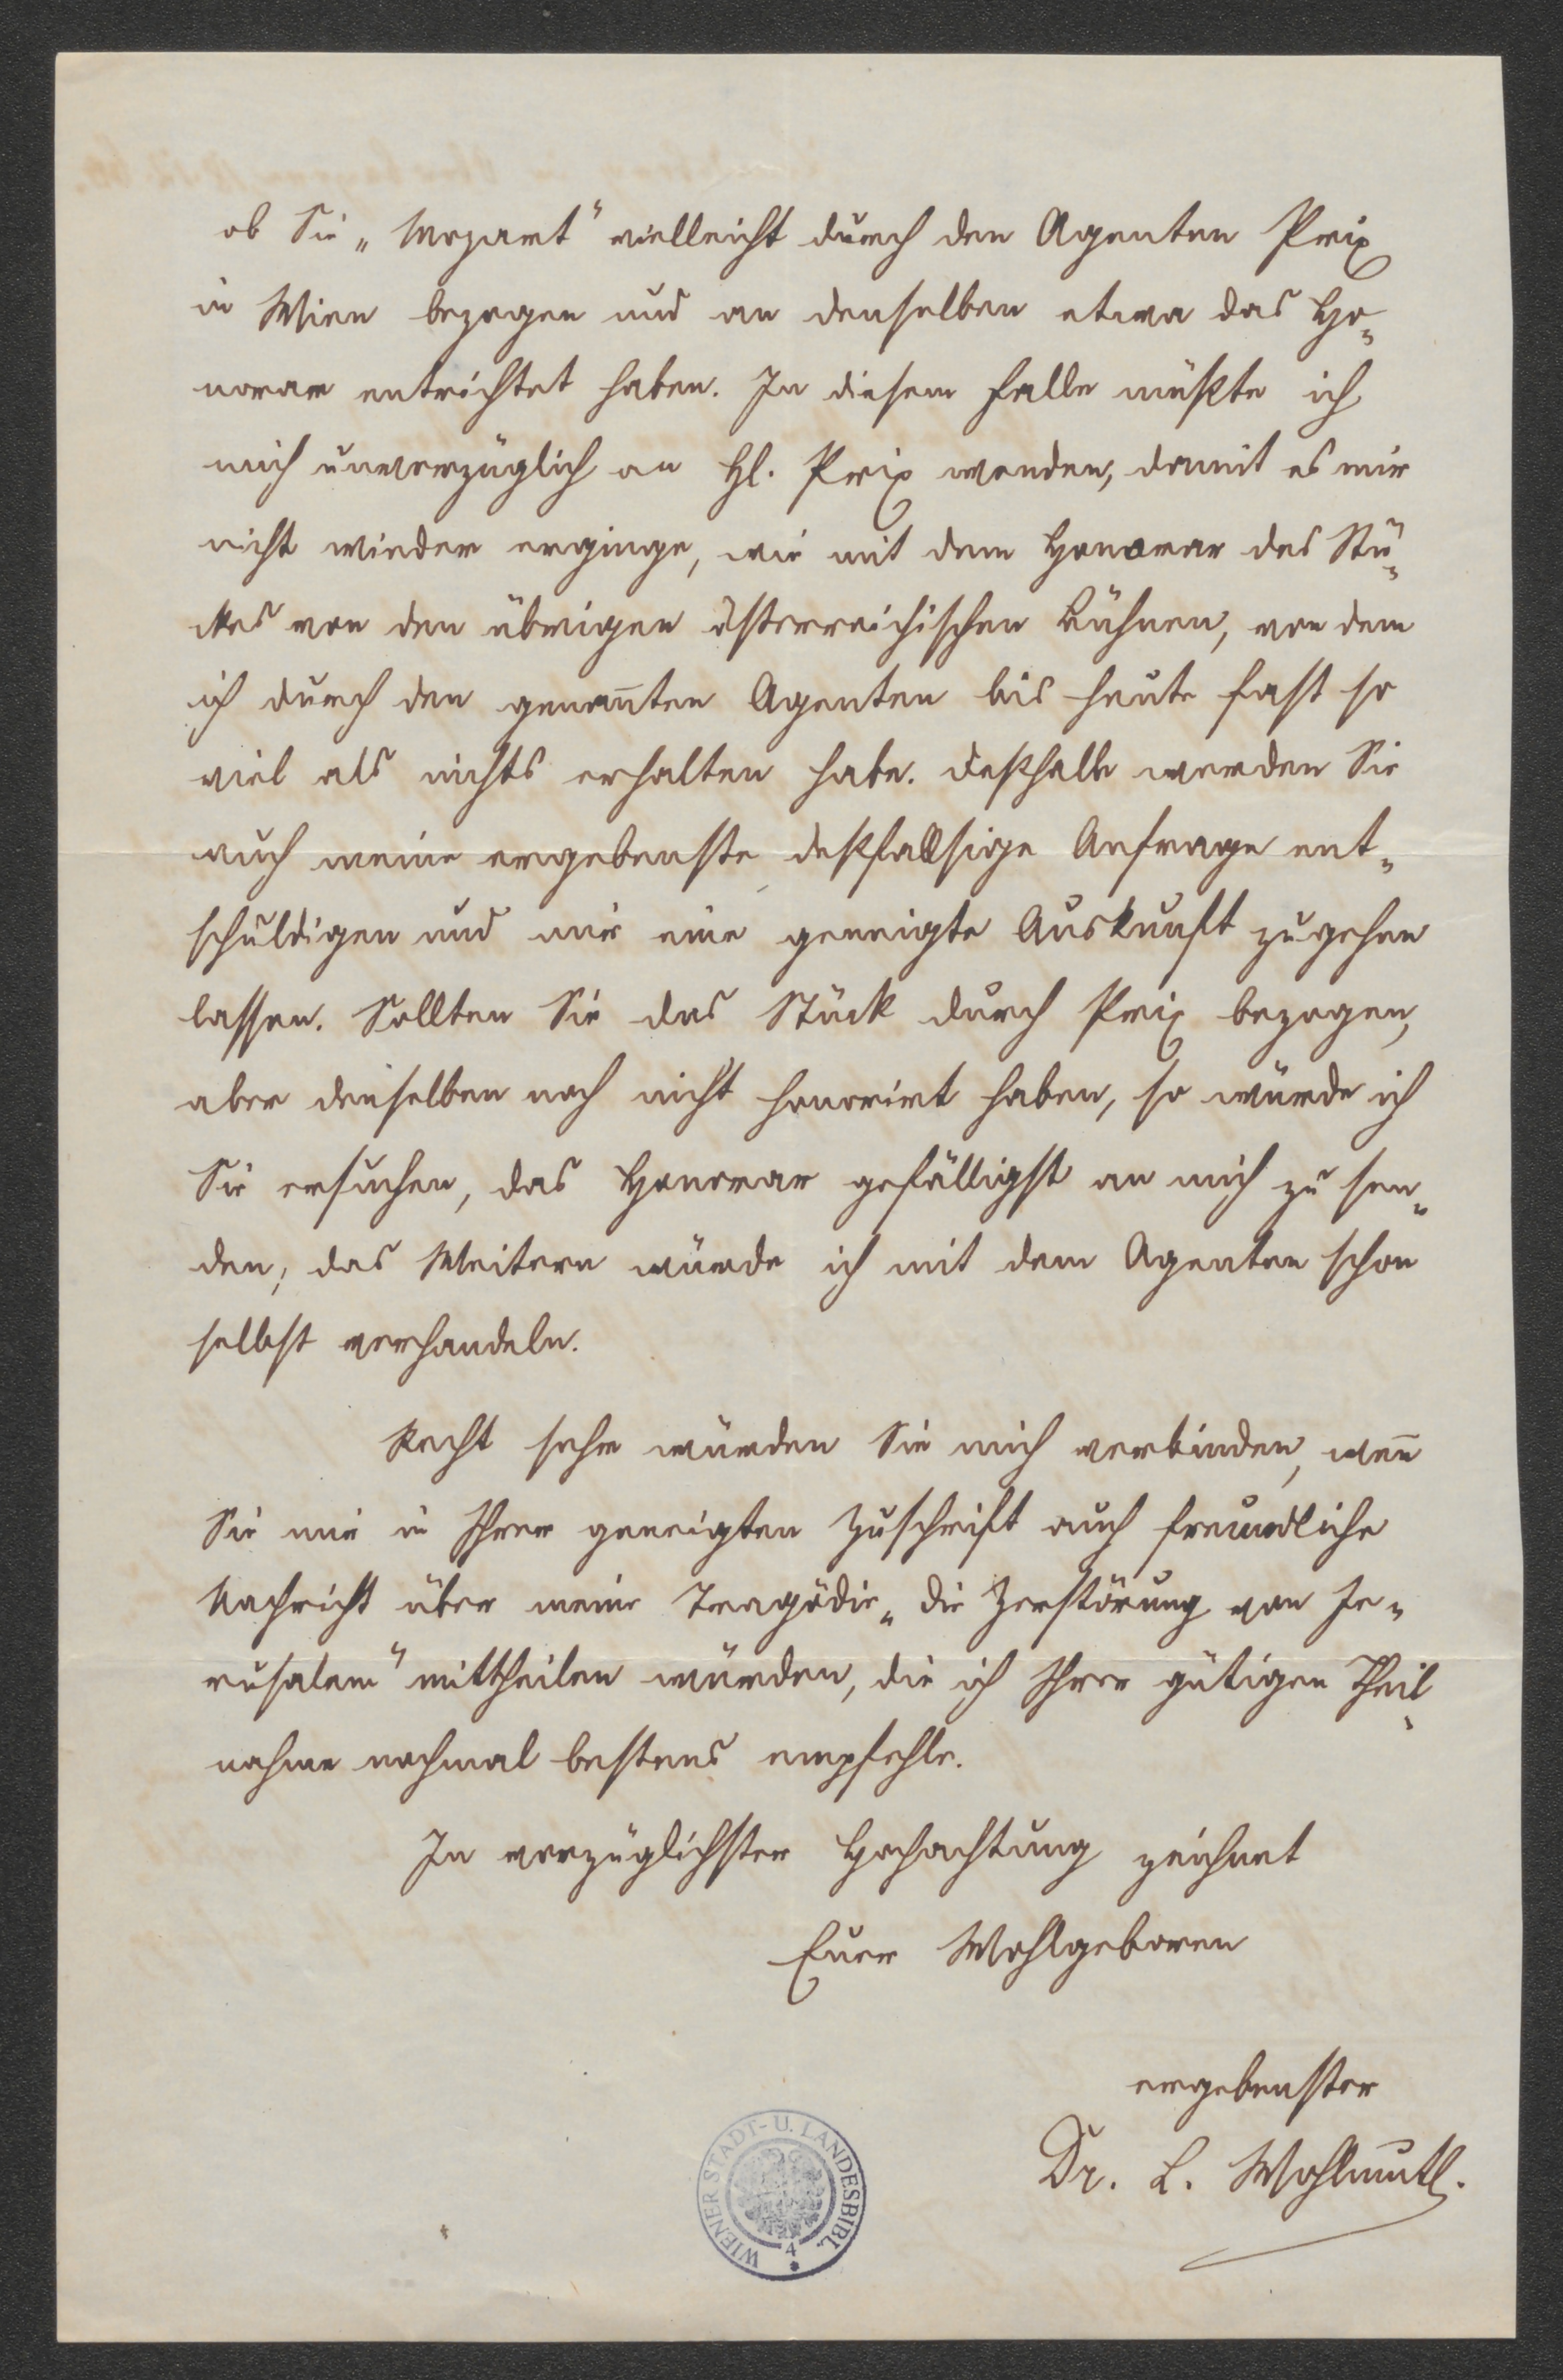 ob Sie „Mozart“ vielleicht durch den Agenten Prix
in Wien bezogen und an denselben etwa das Ho-
norar entrichtet haben. In diesem Falle müßte ich
mich unverzüglich an Hl. Prix wenden, damit es mir
nicht wieder erginge, wie mit dem Honorar des Stü-
ckes von den übrigen österreichischen Bühnen, von dem
ich durch den genañten Agenten bis heute fast so
viel als nichts erhalten habe. Deßhalb werden Sie
auch meine ergebenste deßfallsige Anfrage ent-
schuldigen und mir eine geneigte Auskunft zugehen
lassen. Sollten Sie das Stück durch Prix bezogen,
aber denselben noch nicht honorirt haben, so würde ich
Sie ersuchen, das Honorar gefälligst an mich zu sen-
den; das Weitere würde ich mit dem Agenten schon
selbst verhandeln.
Recht sehr würden Sie mich verbinden, weñ
Sie mir in Ihrer geneigten Zuschrift auch freundliche
Nachricht über meine Tragödie „die Zerstörung von Je-
rusalem“ mittheilen würden, die ich Ihrer gütigen Theil-
nahme nochmal bestens empfehle.
In vorzüglichster Hochachtung zeichnet
Euer Wohlgeboren
ergebenster
Dr. L. Wohlmuth.
WIENER STADT- U. LANDESBIBL.
4